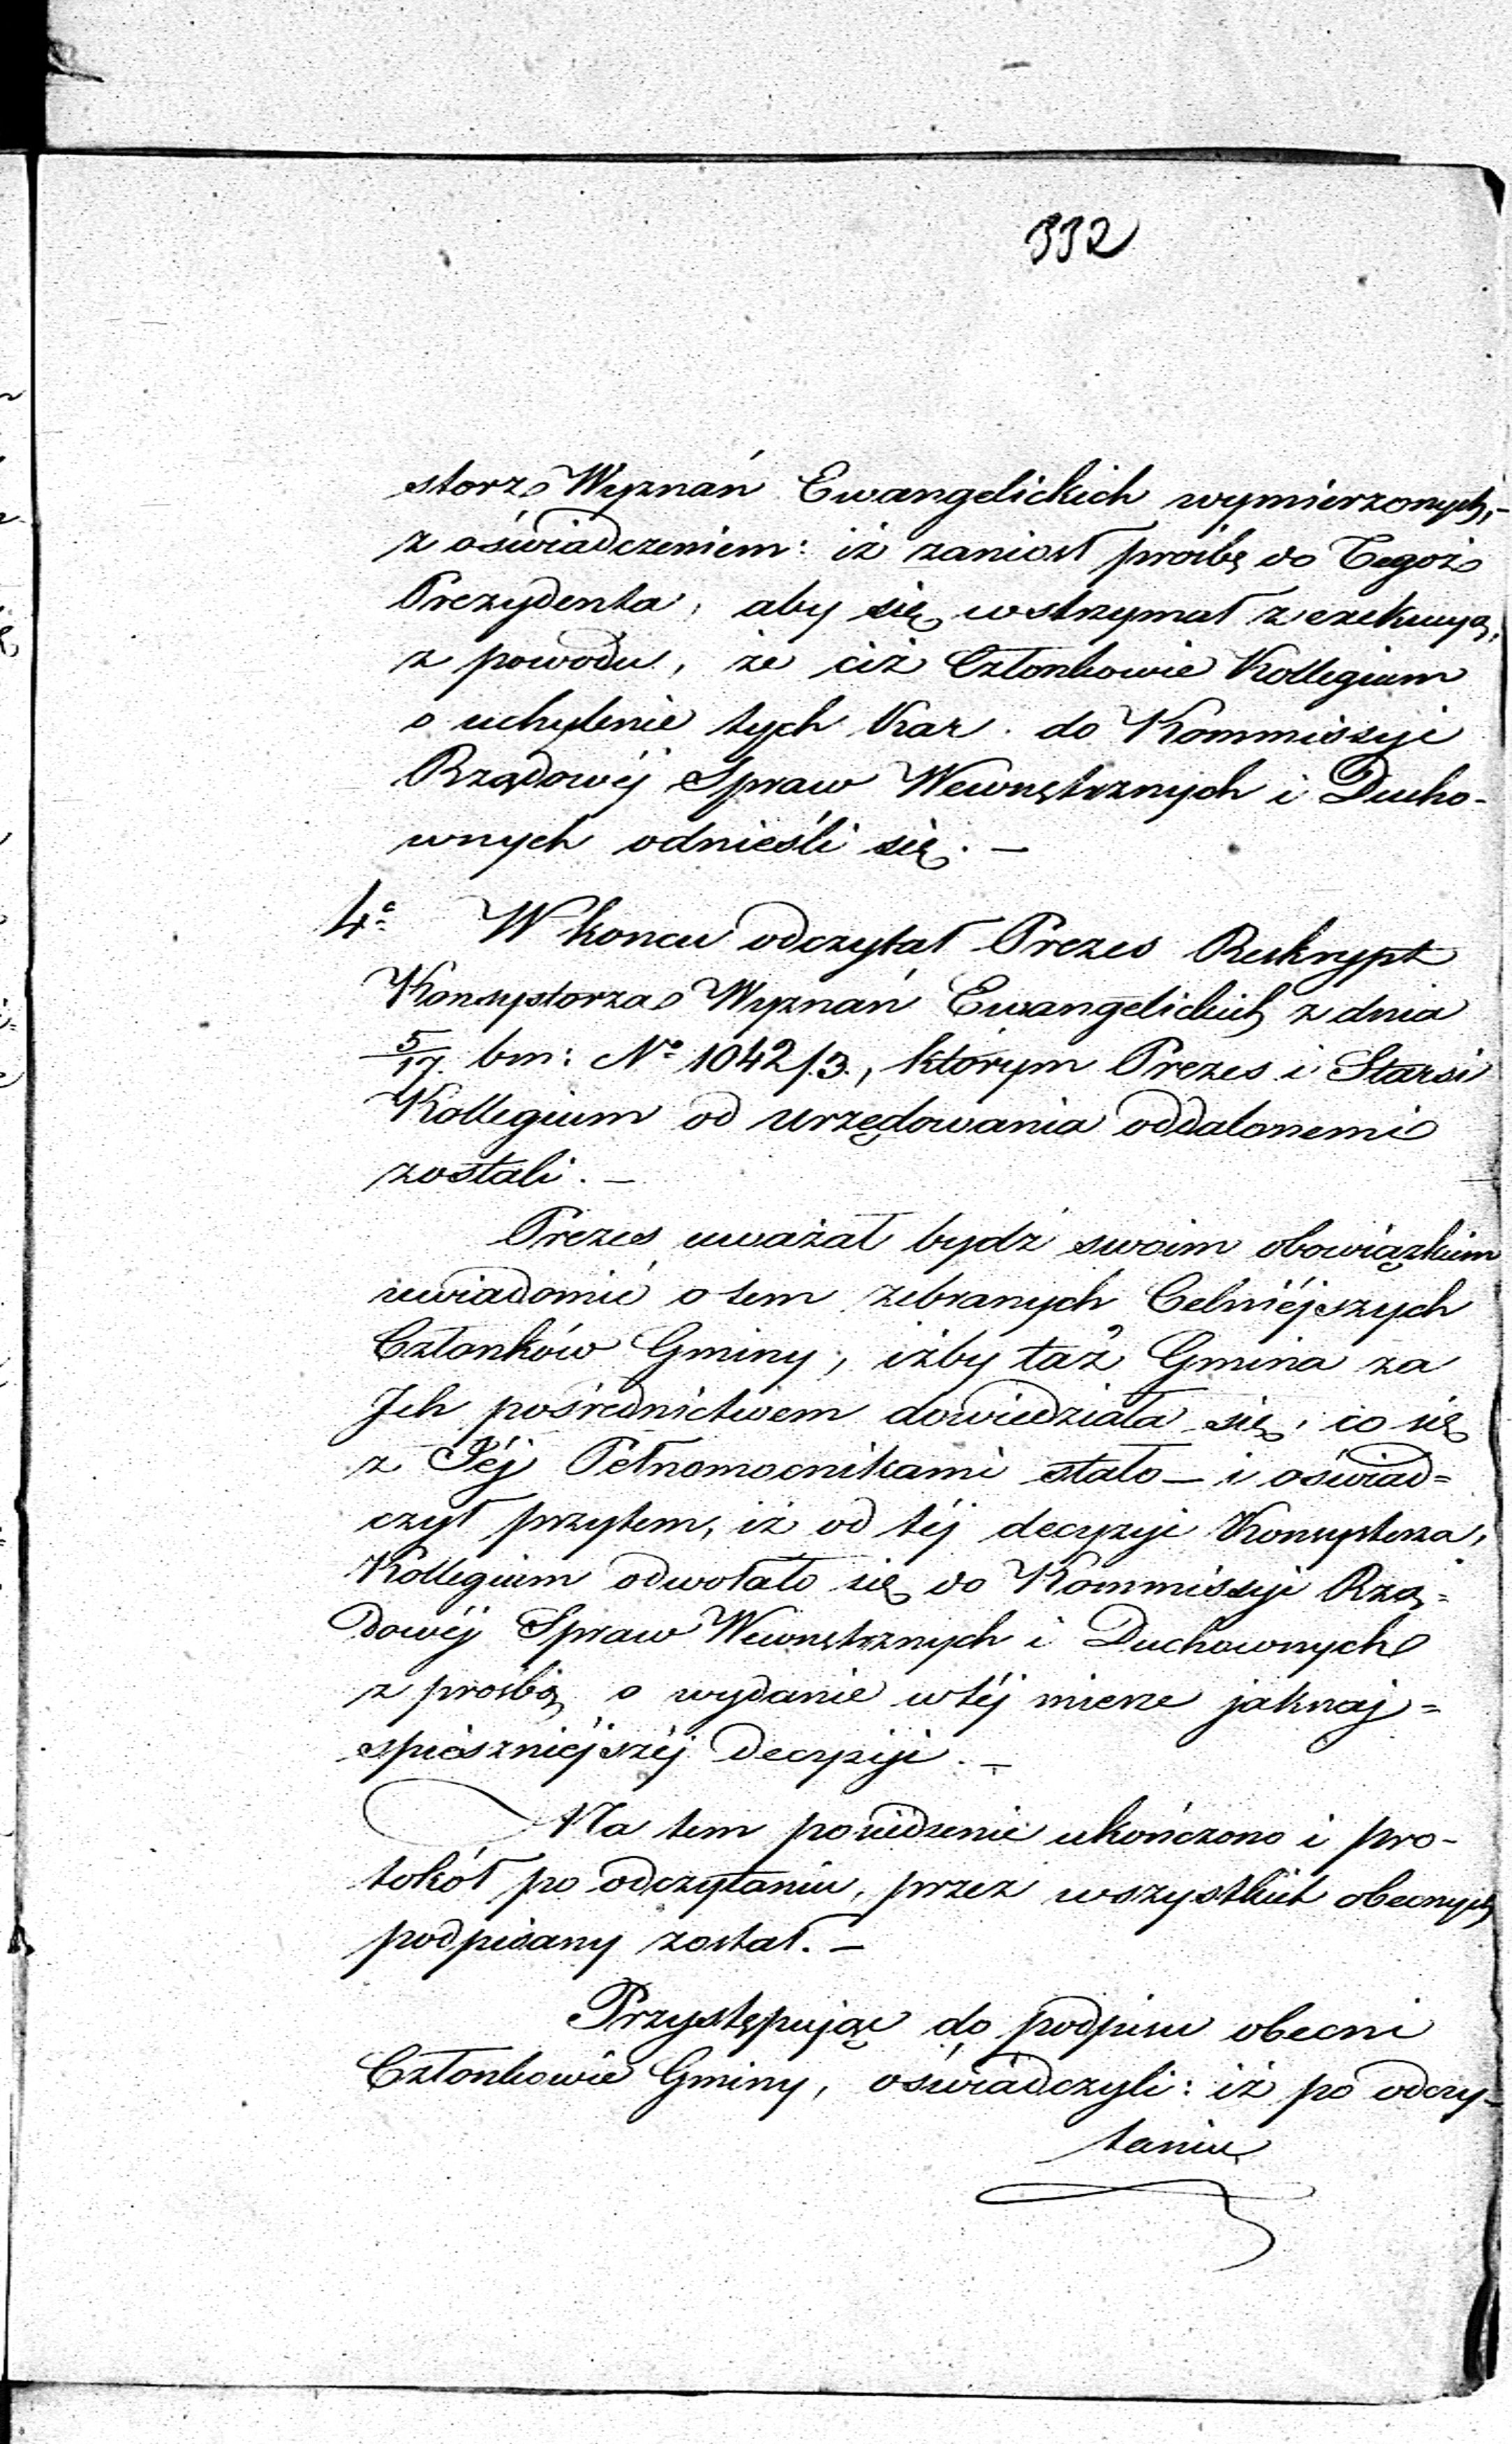 332
storz Wyznań Ewangelickich wymierzonych,-
z oświadczeniem: iż zaniosł prośbę do Tegoż
Prezydenta, aby się wstrzymał z exekucyą,
z powodu, że ciż Członkowie Kollegium
o uchylenie tych Kar do Kommissyi
Rządowéj Spraw Wewnętrznych i Ducho-
wnych odnieśli się. –
4o W koncu odczytał Prezes Reskrypt
Konsystorza Wyznań Ewangelickich z dnia
5/17. bm: No 1042/3., którym Prezes i Starsi
Kollegium od urzędowania oddalonemi
zostali. –
Prezes uważał bydź swoim obowiązkiem
uwiadomić o tem zebranych Celniéjszych
Członków Gminy, iżby taż Gmina za
Ich pośrednictwem dowiedziała się, co się
z Jéj Pełnomocnikami stało – i oświad=
czył przytem, iż od téj decyzyi Konsystorza,
Kollegium odwołało się do Kommissyi Rzą=
dowéj Spraw Wewnętrznych i Duchownych
z prośbą o wydanie w téj mierze jaknaj=
spieszniéjszéj decyzyi. –
Na tem posiedzenie ukończono i pro-
tokół po odczytaniu, przez wszystkich obecnych
podpisany został. –
Przystępując do podpisu obecni
Członkowie Gminy, oświadczyli: iż po odczy-
taniu